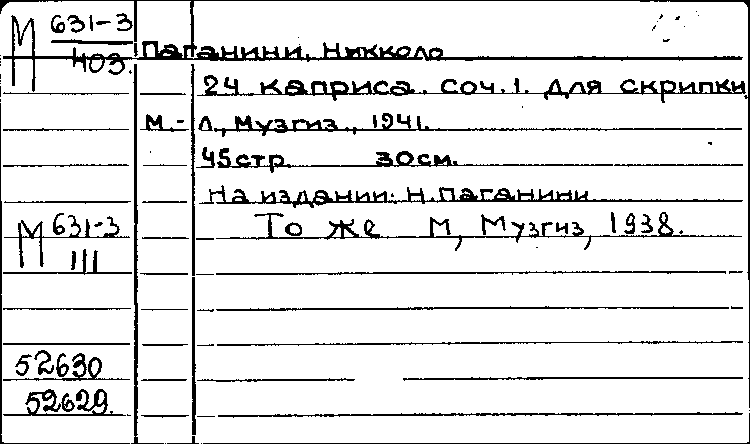 М 631-3
403.
Паганини, Никколо
24 каприса. Соч.1. Для скрипки
М.-Л., Музгиз., 1941.
45стр. 30см.
На издании: Н.Паганини
М 631-3
III
То же М, Музгиз, 1938.
52630
52629.